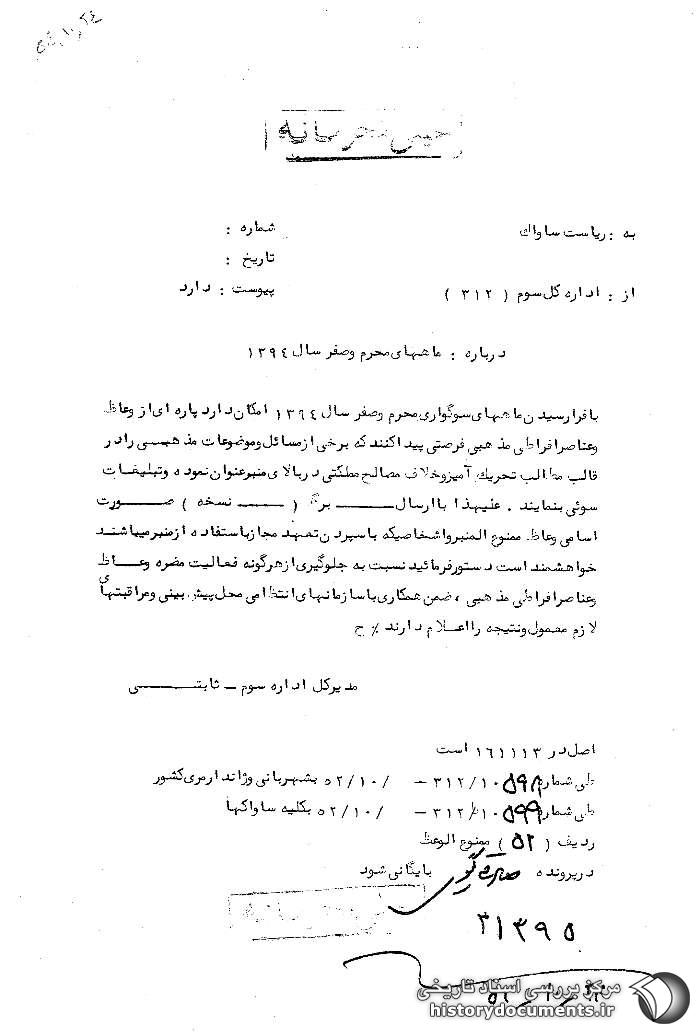 خیلی محرمانه
به : ریاست ساواک
شماره :
تاریخ :
از : اداره کل سوم ( ۳۱۲ )
پیوست : دارد
درباره : ماههای محرم و صفر سال ۱۳۹٤
با فرا رسیدن ماههای سوگواری محرم و صفر سال ۱۳۹٤ امکان دارد پاره ای از وعاظ
و عناصر افراطی مذهبی فرصتی پیدا کنند که برخی از مسائل و موضوعات مذهبی را در
قالب مطالب تحریک آمیز و خلاف مصالح مملکتی در بالای منبر عنوان نموده و تبلیغات
سوئی بنمایند . علیهذا با ارسال ــــــ برگ ( ــــــ نسخه ) صورت
اسامی وعاظ ممنوع المنبر و اشخاصیکه با سپردن تعهد مجاز باستفاده از منبر میباشند
خواهشمند است دستور فرمائید نسبت به جلوگیری از هرگونه فعالیت مضره وعاظ
و عناصر افراطی مذهبی ، ضمن همکاری با سازمانهای انتظامی محل پیش بینی و مراقبتهای
لازم معمول و نتیجه را اعلام دارند ٪ ح
مدیر کل اداره سوم ــ ثابتی
اصل در ۱٦۱۱۱۳ است
طی شماره ۵۹۸ ۳۱۲/۱۰ - / ۵۲/۱۰/ بشهربانی و ژاندارمری کشور
طی شماره ۵۹۹ ۳۱۲/۱۰ - / ۵۲/۱۰/ بکلیه ساواکها
ردیف ( ۵۲ ) ممنوع الوعظ
در پرونده بایگانی شود
۳۱۳۹۵
مرکز بررسی اسناد تاریخی
historydocuments.ir